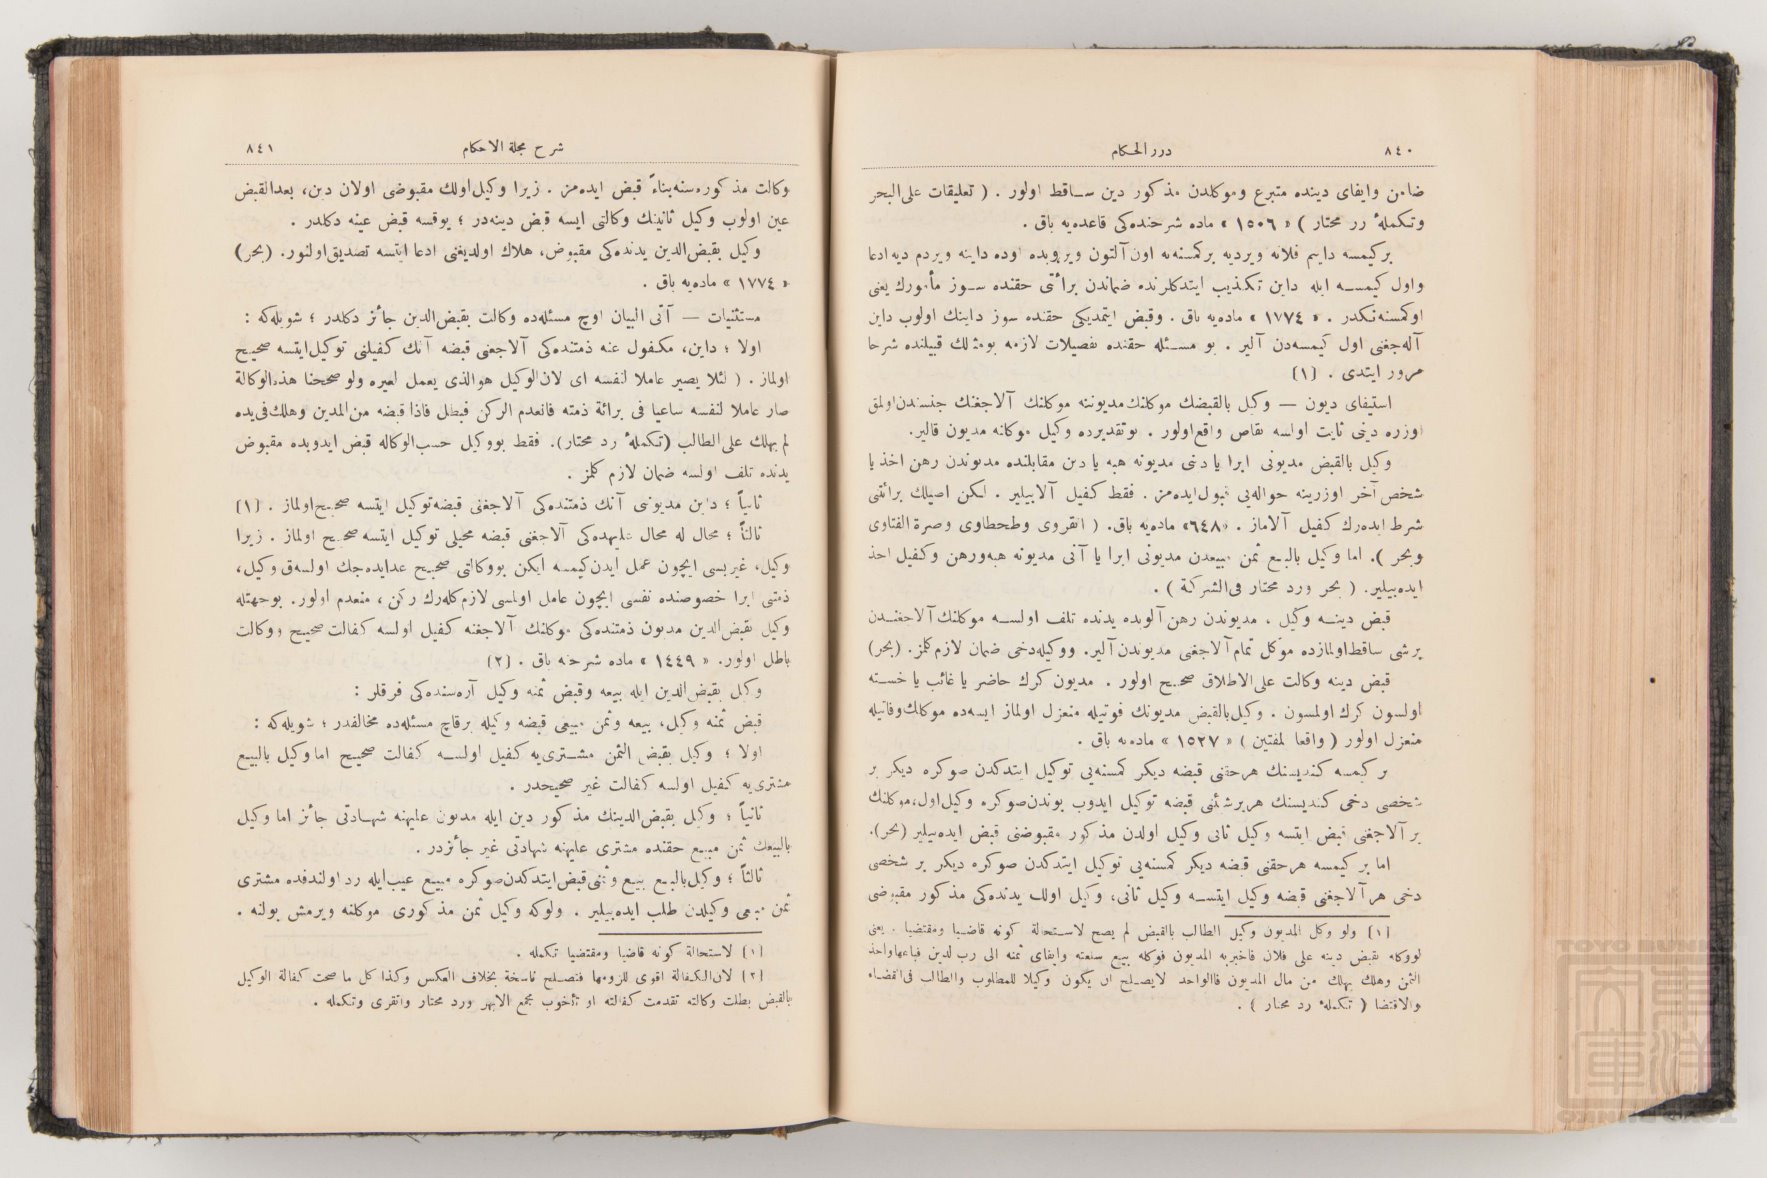 ٨٤٠
درر الحكام
ضامن وايفاى دينده متبرع وموكلدن مذكور دين ساقط اولور . ( تعليقات على البحر
وتكملهٔ رد محتار ) « ١٥٠٦ » ماده شرحنده‌كى قاعده‌يه باق .
بركيمسه دايم فلانه ويرديه بركمسنه‌يه اون آلتون ويروبده اوده داينه ويردم ديه ادعا
واول كيمسه ايله داين تكذيب ايتدكلرنده ضماندن برأتى حقنده سوز مأمورك يعنى
اوكمسنه‌نكدر . « ١٧٧٤ » ماده‌يه باق . وقبض ايتمديكى حقنده سوز داينك اولوب داين
آله‌جغنى اول كيمسه‌دن آلير . بو مسئله حقنده تفصيلات لازمه بومثللك قبيلنده شرحا
مرور ايتدى . [١]
استيفاى ديون — وكيل بالقبضك موكلنك مديوننه موكلنك آلاجغنك جنسندن اولمق
اوزره دينى ثابت اولسه تقاص واقع اولور . بوتقديرده وكيل موكلنه مديون قالير.
وكيل بالقبض مديونى ابرا يا دينى مديونه هبه يا دين مقابلنده مديوندن رهن اخذ يا
شخص آخر اوزرينه حواله‌يى قبول ايده‌مز . فقط كفيل آلابيلير . لكن اصيلك برائتى
شرط ايده‌رك كفيل آلاماز . «٦٤٨» ماده‌يه باق. ( انقروى وطحطاوى وصرة الفتاوى
وبحر ). اما وكيل بالبيع ثمن مبيعدن مديونى ابرا يا آنى مديونه هبه ورهن وكفيل اخذ
ايده‌بيلير. ( بحر ورد محتار فى الشركة ) .
قبض دينه وكيل ، مديوندن رهن آلوبده يدنده تلف اولسه موكلنك آلاجغندن
برشى ساقط اولمازده موكل تمام آلاجغنى مديوندن آلير. ووكيله‌دخى ضمان لازم كلمز. (بحر)
قبض دينه وكالت على الاطلاق صحيح اولور . مديون كرك حاضر يا غائب يا خسته
اولسون كرك اولمسون . وكيل بالقبض مديونك فوتيله منعزل اولماز ايسه‌ده موكلك وفاتيله
منعزل اولور ( واقعات المفتين ) « ١٥٢٧ » ماده‌يه باق .
بر كيمسه كنديسنك هرحقنى قبضه ديكر كمسنه‌يى توكيل ايتدكدن صوكره ديكر بر
شخصى دخى كنديسنك هربرشئنى قبضه توكيل ايدوب بوندن صوكره وكيل اول، موكلنك
بر آلاجغنى قبض ايتسه وكيل ثانى وكيل اولدن مذكور مقبوضنى قبض ايده‌بيلير (بحر).
اما بر كيمسه هرحقنى قبضه ديكر كمسنه‌يى توكيل ايتدكدن صوكره ديكر بر شخصى
دخى هر آلاجغنى قبضه وكيل ايتسه وكيل ثانى، وكيل اولك يدنده‌كى مذكور مقبوضى
[١] ولو وكل المديون وكيل الطالب بالقبض لم يصح لاستحالة كونه قاضيا ومقتضيا . يعنى
لووكله بقبض دينه على فلان فاخبربه المديون فوكله ببيع سلعته وايفاى ثمنه الى رب الدين فباعها واخذ
الثمن وهلك يهلك من مال المديون فالواحد لايصلح ان يكون وكيلا للمطلوب والطالب فى القضاء
والاقتضا ( تكملهٔ رد محتار ) .
شرح مجلة الاحكام
٨٤١
وكالت مذكوره‌سنه بناءً قبض ايده‌مز . زيرا وكيل اولك مقبوضى اولان دين، بعدالقبض
عين اولوب وكيل ثانينك وكالتى ايسه قبض دينه‌در ؛ يوقسه قبض عينه دكلدر .
وكيل بقبض الدين يدنده‌كى مقبوض، هلاك اولديغنى ادعا ايتسه تصديق اولنور. (بحر)
« ١٧٧٤ » ماده‌يه باق .
مستثنيات — آتى البيان اوچ مسئله‌ده وكالت بقبض الدين جائز دكلدر ؛ شويله‌كه :
اولا ؛ داين، مكفول عنه ذمتنده‌كى آلاجغنى قبضه آنك كفيلنى توكيل ايتسه صحيح
اولماز . ( لئلا يصير عاملا لنفسه اى لان الوكيل هوالذى يعمل لغيره ولو صححنا هذه الوكالة
صار عاملا لنفسه ساعيا فى برائة ذمته فانعدم الركن فبطل فاذا قبضه من المدين وهلك فى يده
لم يهلك على الطالب (تكملهٔ رد محتار). فقط بووكيل حسب الوكاله قبض ايدوبده مقبوض
يدنده تلف اولسه ضمان لازم كلمز .
ثانياً ؛ داين مديوننى آنك ذمتنده‌كى آلاجغنى قبضه توكيل ايتسه صحيح اولماز . [١]
ثالثاً ؛ محال له محال عليهده‌كى آلاجغنى قبضه محيلى توكيل ايتسه صحيح اولماز . زيرا
وكيل، غيريسى ايچون عمل ايدن كيمسه ايكن بووكالتى صحيح عدايده‌جك اولسه‌ق وكيل،
ذمتى ابرا خصوصنده نفسى ايچون عامل اولمسى لازم كله‌رك ركن ، منعدم اولور. بوجهتله
وكيل بقبض الدين مديون ذمتنده‌كى موكلنك آلاجغنه كفيل اولسه كفالت صحيح ووكالت
باطل اولور. « ١٤٤٩ » ماده شرحنه باق . [٢]
وكيل بقبض الدين ايله بيعه وقبض ثمنه وكيل آره‌سنده‌كى فرقلر :
قبض ثمنه وكيل، بيعه وثمن مبيعى قبضه وكيله برقاچ مسئله‌ده مخالفدر ؛ شويله‌كه :
اولا ؛ وكيل بقبض الثمن مشترى‌يه كفيل اولسه كفالت صحيح اما وكيل بالبيع
مشترى‌يه كفيل اولسه كفالت غير صحيحدر .
ثانياً ؛ وكيل بقبض الدينك مذكور دين ايله مديون عليهنه شهادتى جائز اما وكيل
بالبيعك ثمن مبيع حقنده مشترى عليهنه شهادتى غير جائزدر .
ثالثاً ؛ وكيل بالبيع بيع وثمنى قبض ايتدكدن صوكره مبيع عيب ايله رد اولندقده مشترى
ثمن مبيعى وكيلدن طلب ايده‌بيلير . ولوكه وكيل ثمن مذكورى موكلنه ويرمش بولنه .
[١] لاستحالة كونه قاضيا ومقتضيا تكمله .
[٢] لان الكفالة اقوى للزومها فتصلح ناسخة بخلاف العكس وكذا كل ما صحت كفالة الوكيل
بالقبض بطلت وكالته تقدمت كفالته او تأخرت مجمع الانهر ورد محتار وانقروى وتكمله .